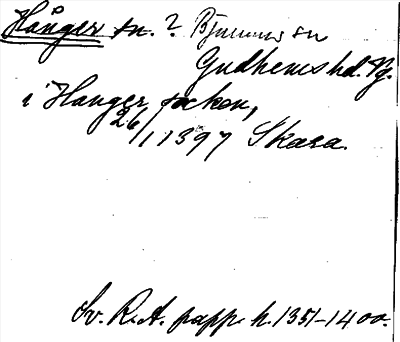 Hånger sn. ? Bjurums sn
Gudhems hd. Vg.
i Hanger socken,
26/1 1397 Skara.
Sv. R.A. papp. h. 1351-1400.